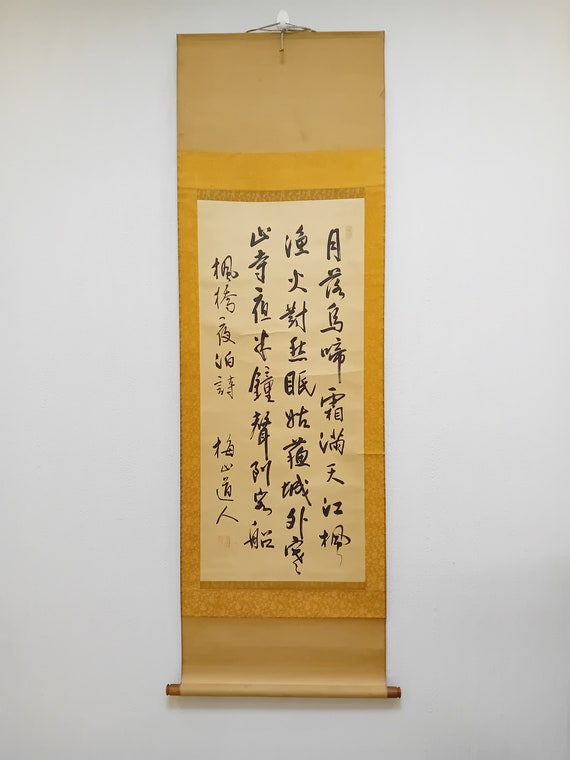 月落烏啼霜滿天江楓
漁火對愁眠姑蘇城外寒
山寺夜半鐘聲到客船
楓橋夜泊詩 梅山道人